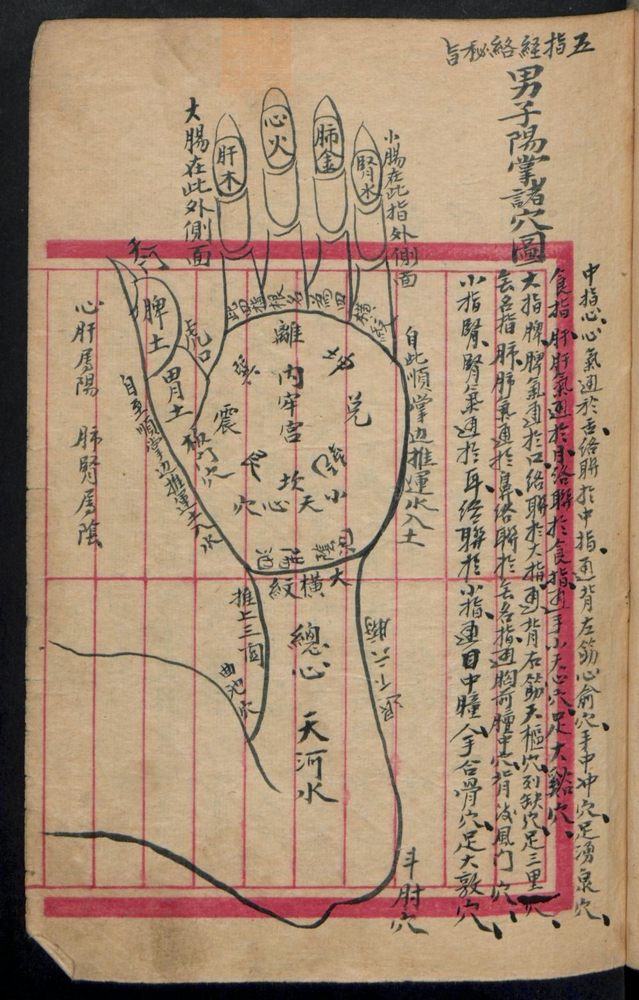 五指經絡秘旨
男子陽掌諸穴圖
中指心心氣通於舌絡聯於中指通背左筋心俞穴手中冲穴足湧泉穴
食指肝肝氣通於目絡聯於食指通手小天心穴足大谿穴
大指脾脾氣通於口絡聯於大指通背右筋天樞穴列缺穴足三里穴
無名指肺肺氣通於鼻絡聯於無名指通胸前膻中穴背後風門穴
小指腎腎氣通於耳絡聯於小指通目中瞳人手合骨穴足大敦穴
小腸在此指外側面
腎水
肺金
心火
肝木
大腸在此外側面
自此順掌边推運水入土
離
兌
震
坎
內牢宮
小天心穴
虎口
脾土
胃土
板門穴
自至順掌边推運土入水
心肝屬陽 肺腎屬陰
大橫紋
推上三關
曲池穴
總心
天河水
退下六腑
斗肘穴